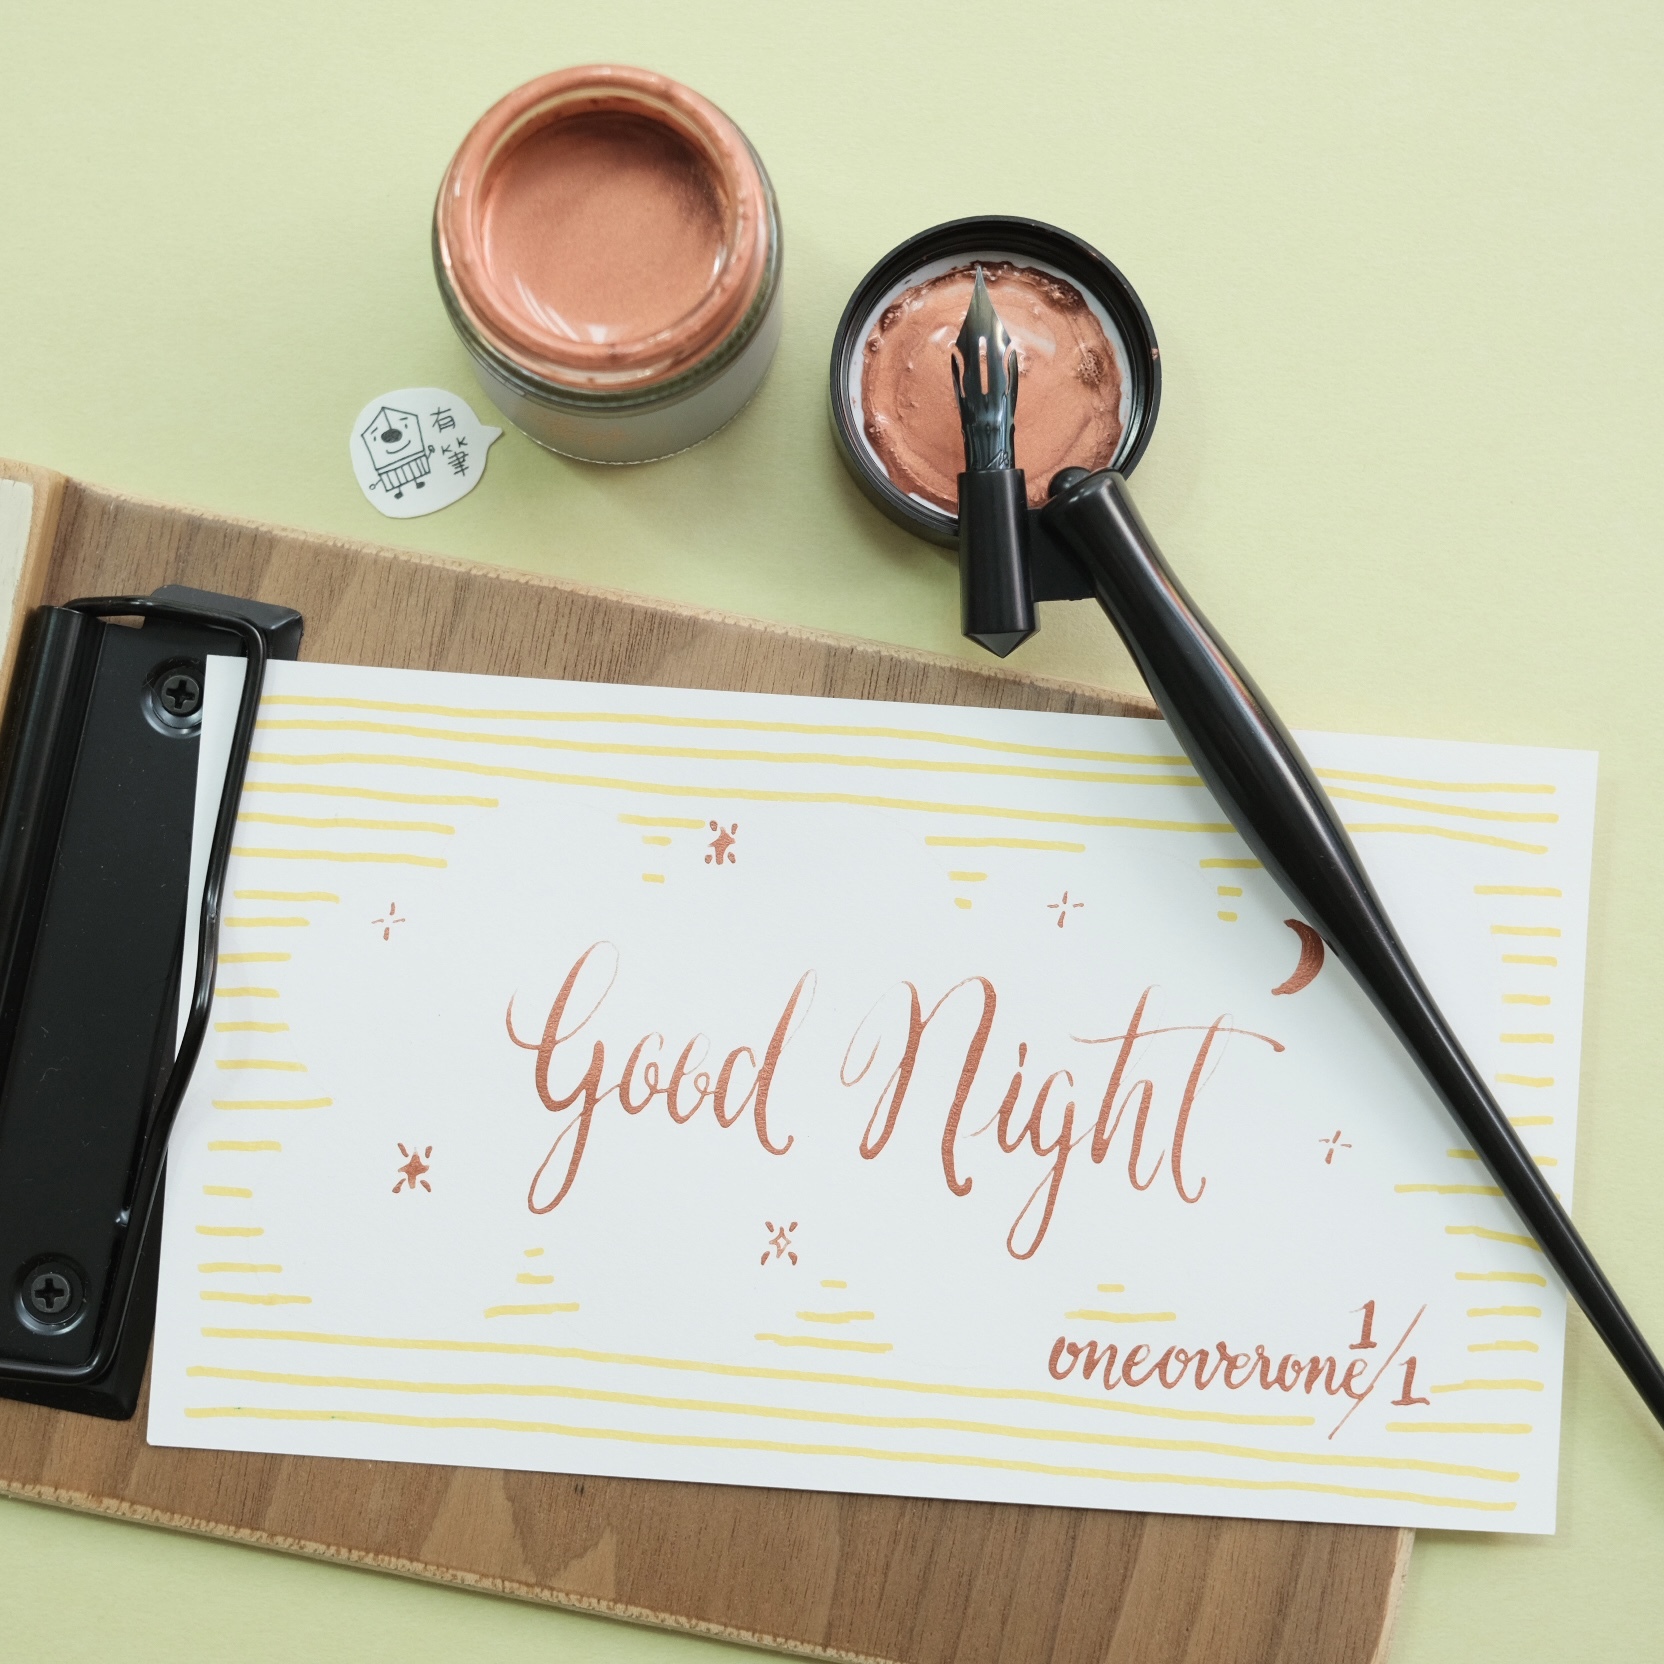 有
KK
筆
Good Night
oneoverone 1/1